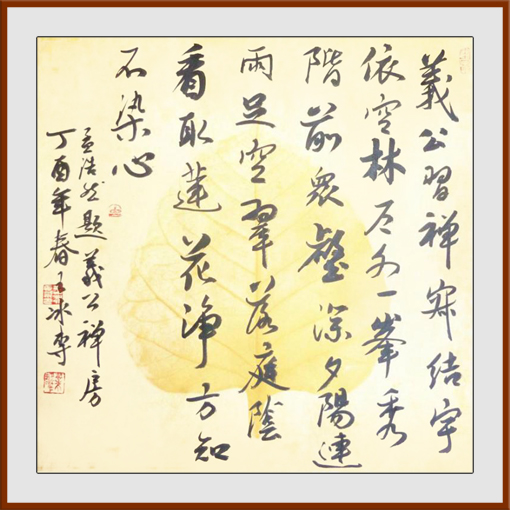 義公習禅寂结宇
依空林户外一峯秀
階前衆壑深夕陽連
雨足空翠落庭陰
看取蓮花淨方知
不染心
孟浩然題義公禅房
丁酉年春